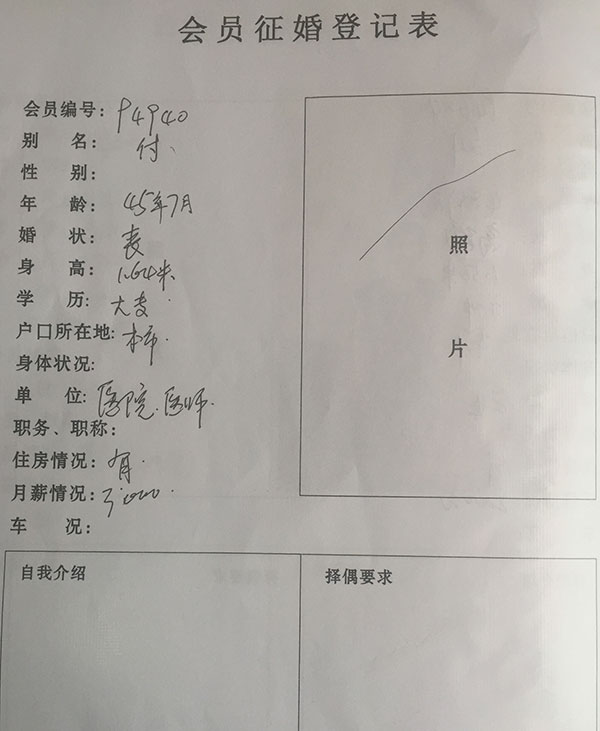 会员征婚登记表
会员编号: P4940
别 名: 付、
性 别:
年 龄: 45年7月
婚 状: 丧
身 高: 1.64米
学 历: 大专
户口所在地: 本市.
身体状况:
单 位: 医院.医师.
职务、职称:
住房情况: 有.
月薪情况: 3000.
车 况:
照
片
自我介绍
择偶要求